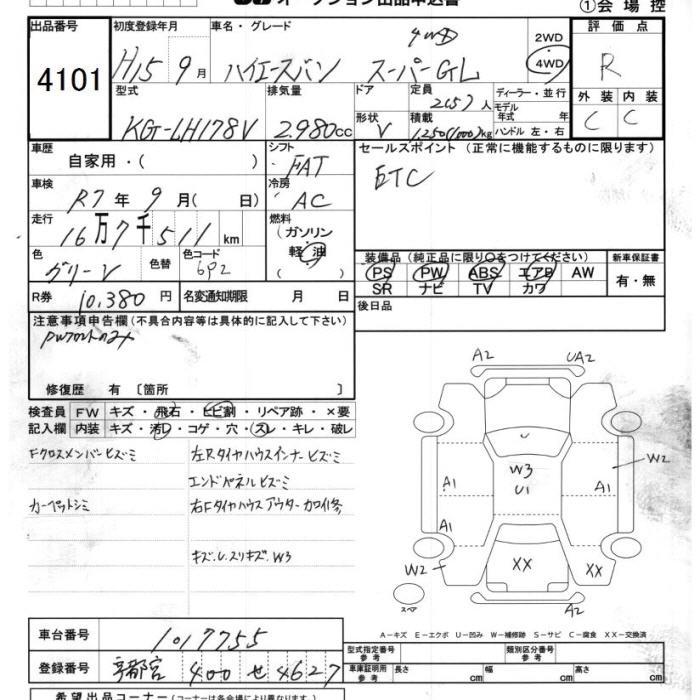 オークション出品申込書
①会場控
出品番号 4101
初度登録年月 H15 9月
車名・グレード 4WD
ハイエースバン スーパーGL
2WD
4WD
評価点 R
外装 C 内装 C
型式 KG-LH178V
排気量 2.980cc
ドア
形状 V
定員 2(5)人
積載 1,250(1000)kg
ディーラー・並行
モデル年式 年
ハンドル 左・右
車歴 自家用・( )
シフト FAT
車検 R7年 9月( 日)
冷房 AC
走行 16万7千511km
燃料 (ガソリン・軽油)
( )
色 グリーン 色替 色コード 6P2
セールスポイント (正常に機能するものに限ります)
ETC
装備品 (純正品に限り○をつけてください)
PS PW ABS エアB AW
SR ナビ TV カワ
新車保証書 有・無
R券 10,380円
名変通知期限 月 日
後日品
注意事項申告欄 (不具合内容等は具体的に記入して下さい)
修復歴 有 〔箇所 〕
検査員 FW キズ・飛石・ヒビ割・リペア跡・×要
記入欄 内装 キズ・汚レ・コゲ・穴・スレ・キレ・破レ
Fクロスメンバーヒズミ 左Rタイヤハウスインナーヒズミ
エンドパネルヒズミ
カーペットシミ 右Fタイヤハウスアウターカロイ修
キズ.U.スリキズ.W3
A2 UA2
W3
U1
W2
A1 A1
A1
W2
XX XX
スペア
A2
A-キズ E-エクボ U-凹み W-補修跡 S-サビ C-腐食 XX-交換済
車台番号 1017755
登録番号 宇都宮 400 せ 4627
型式指定番号 参考
類別区分番号 参考
車庫証明用 参考 長さ cm 幅 cm 高さ cm
希望出品コーナー (コーナーは各会場により異なります。)